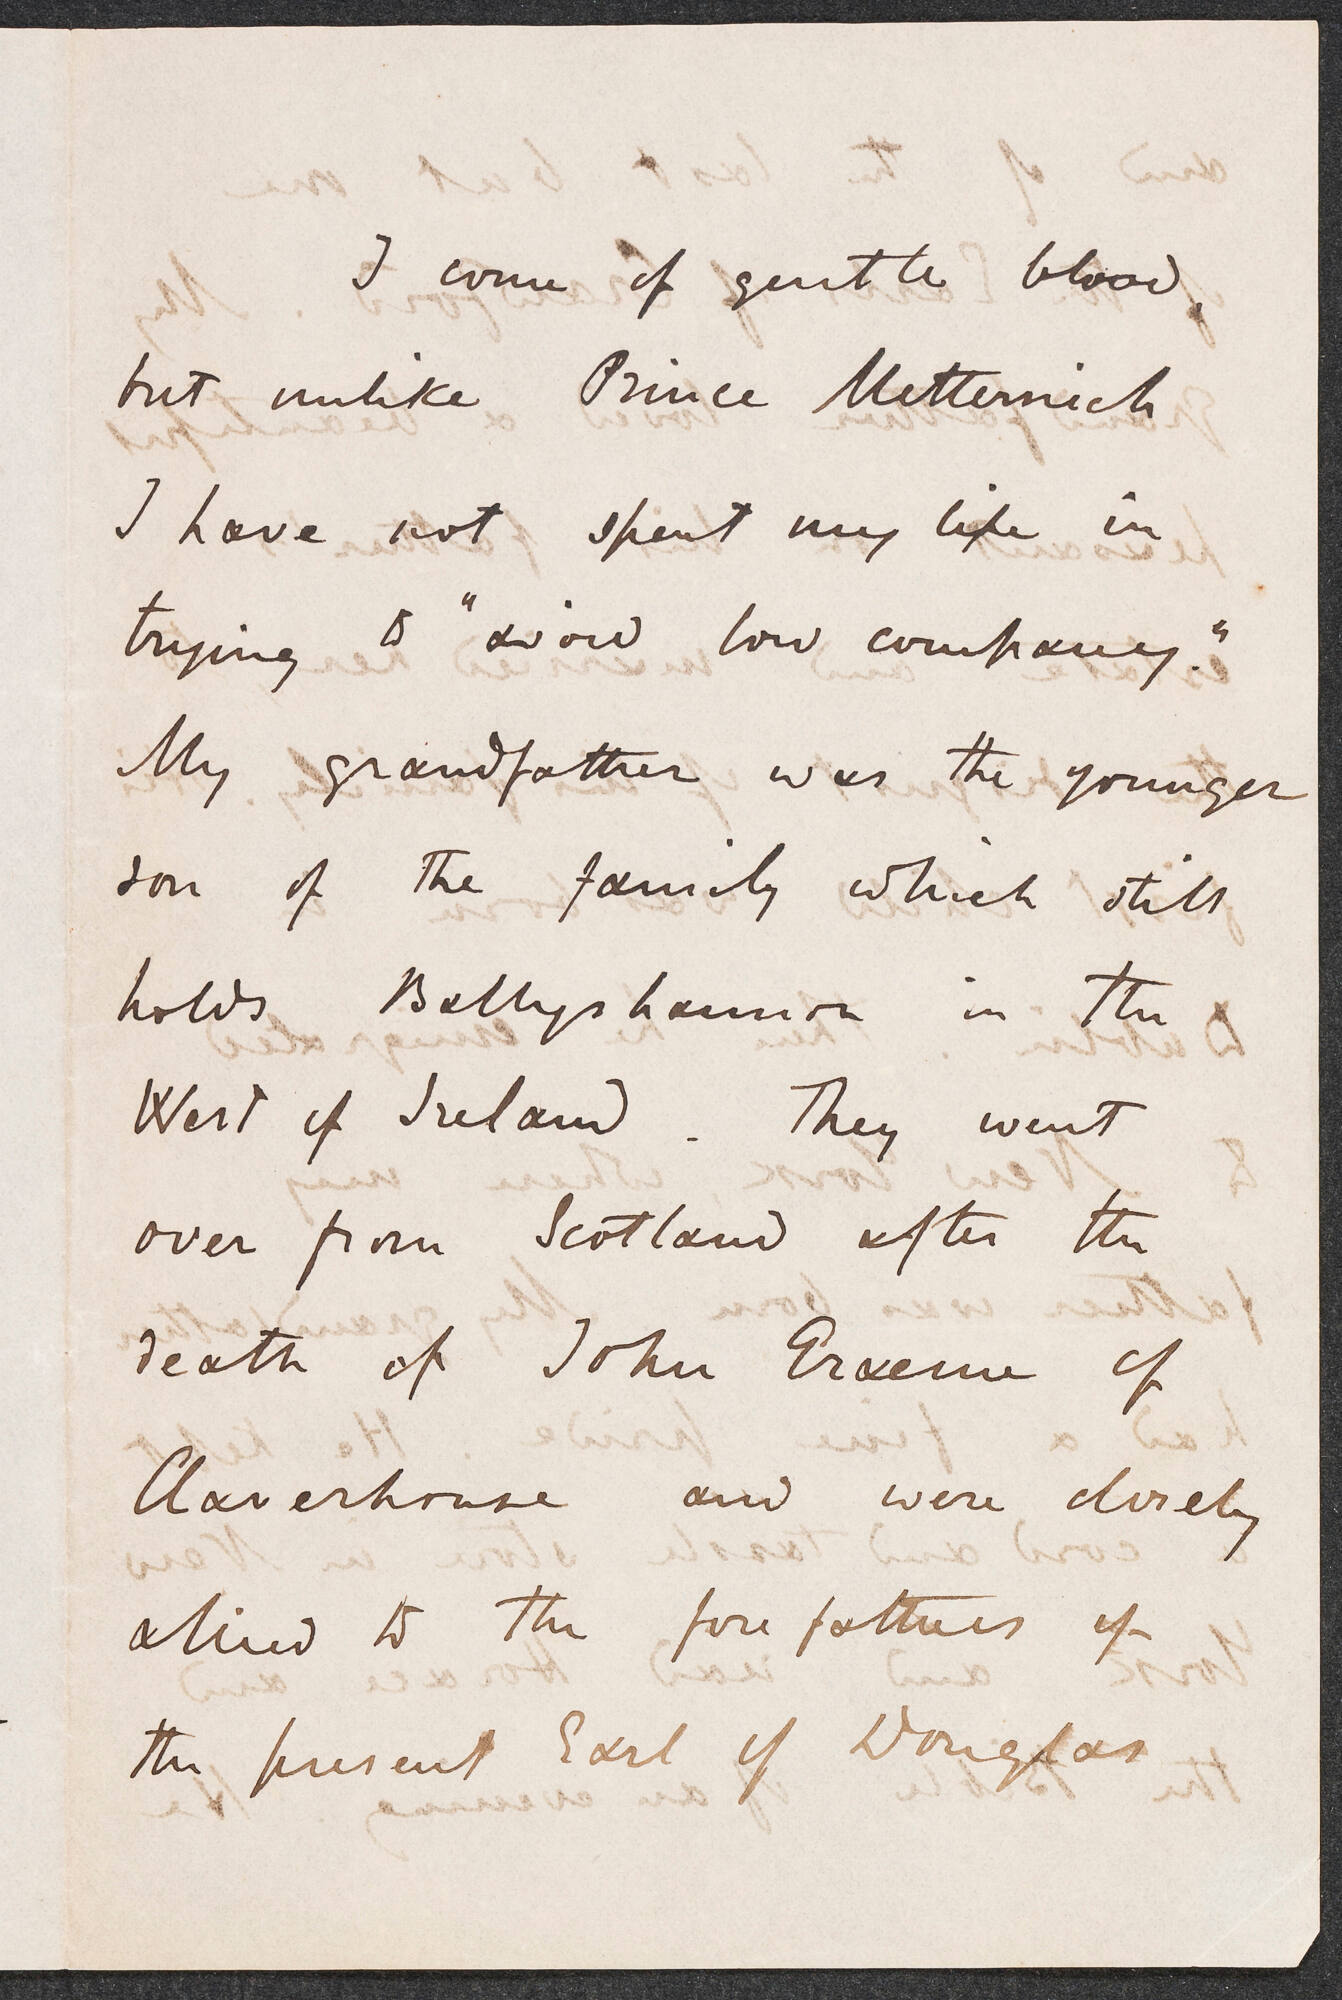 I come of gentle blood,
but unlike Prince Metternich
I have not spent my life in
trying to "avoid low company."
My grandfather was the younger
son of the family which still
holds Ballyshannon in the
West of Ireland. They went
over from Scotland after the
death of John Graeme of
Claverhouse and were closely
allied to the forefathers of
the present Earl of Douglas